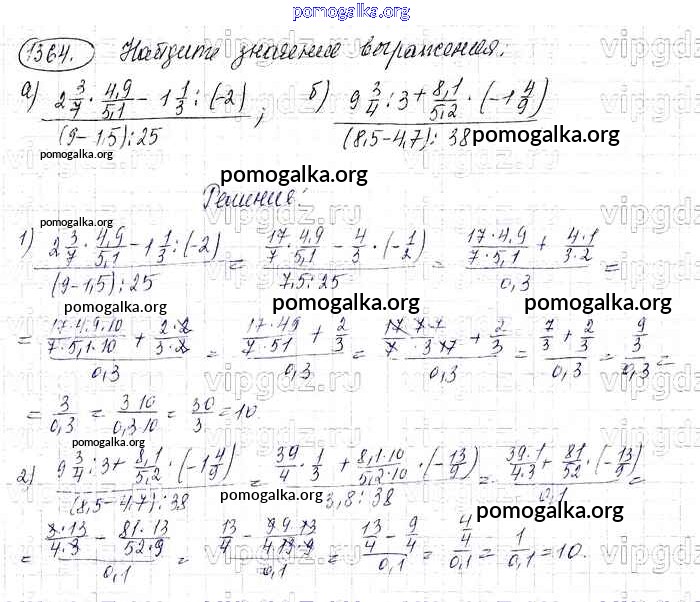 pomogalka.org
1364. Найдите значение выражения:
а) (2 3/7 · 4,9/5,1 − 1 1/3 : (−2)) / ((9−1,5) : 25) ; б) (9 3/4 : 3 + 8,1/5,2 · (−1 4/9)) / ((8,5−4,7) : 38)
pomogalka.org pomogalka.org
pomogalka.org
Решение:
pomogalka.org
1) (2 3/7 · 4,9/5,1 − 1 1/3 : (−2)) / ((9−1,5) : 25) = (17/7 · 4,9/5,1 − 4/3 · (−1/2)) / (7,5 : 25) = ((17·4,9)/(7·5,1) + (4·1)/(3·2)) / 0,3 =
pomogalka.org pomogalka.org pomogalka.org
= ((17·4,9·10)/(7·5,1·10) + (2·2)/(3·2)) / 0,3 = ((17·49)/(7·51) + 2/3) / 0,3 = ((17·7·7)/(7·3·17) + 2/3) / 0,3 = (7/3 + 2/3) / 0,3 = (9/3) / 0,3 =
= 3/0,3 = (3·10)/(0,3·10) = 30/3 = 10
pomogalka.org
2) (9 3/4 : 3 + 8,1/5,2 · (−1 4/9)) / ((8,5−4,7) : 38) = (39/4 · 1/3 + (8,1·10)/(5,2·10) · (−13/9)) / (3,8 : 38) = ((39·1)/(4·3) + 81/52 · (−13/9)) / 0,1 =
pomogalka.org
pomogalka.org
= ((3·13)/(4·3) − (81·13)/(52·9)) / 0,1 = (13/4 − (9·9·13)/(4·13·9)) / 0,1 = (13/4 − 9/4) / 0,1 = (4/4) / 0,1 = 1/0,1 = 10.
pomogalka.org